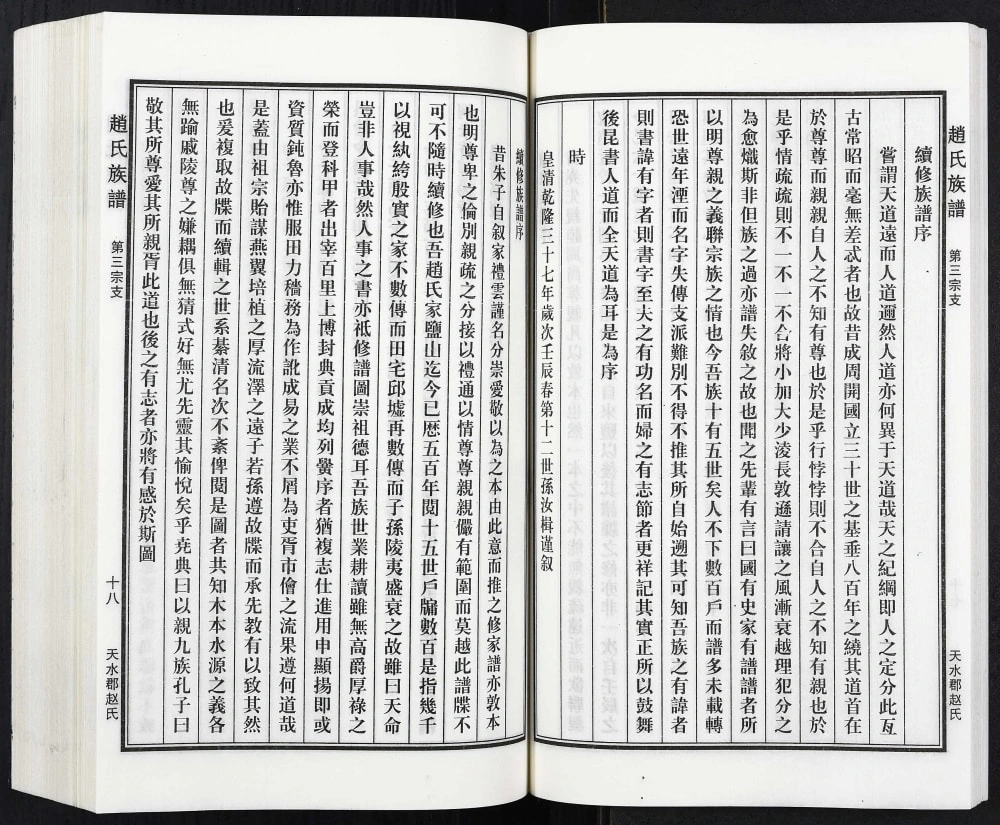 趙氏族譜
第三宗支
天水郡赵氏
續修族譜序
嘗謂天道遠而人道邇然人道亦何異于天道哉天之紀綱即人之定分此亙
古常昭而毫無差忒者也故昔成周開國立三十世之基垂八百年之繞其道首在
於尊尊而親親自人之不知有尊也於是乎行悖悖則不合自人之不知有親也於
是乎情疏疏則不一不一不合將小加大少淩長敦遜請讓之風漸衰越理犯分之
為愈熾斯非但族之過亦譜失敘之故也聞之先輩有言曰國有史家有譜譜者所
以明尊親之義聯宗族之情也今吾族十有五世矣人不下數百戶而譜多未載轉
恐世遠年湮而名字失傳支派難別不得不推其所自始遡其可知吾族之有諱者
則書諱有字者則書字至夫之有功名而婦之有志節者更祥記其實正所以鼓舞
後昆書人道而全天道為耳是為序
時
皇清乾隆三十七年歲次壬辰春第十二世孫汝楫谨叙
續修族譜序
昔朱子自叙家禮雲謹名分崇愛敬以為之本由此意而推之修家譜亦敦本
也明尊卑之倫別親疏之分接以禮通以情尊尊親親儼有範圍而莫越此譜牒不
可不隨時續修也吾趙氏家鹽山迄今已歷五百年閱十五世戶牖數百是指幾千
以視紈綺殷實之家不數傳而田宅邱墟再數傳而子孫陵夷盛衰之故雖曰天命
豈非人事哉然人事之書亦祗修譜圖崇祖德耳吾族世業耕讀雖無高爵厚祿之
榮而登科甲者出宰百里上博封典貢成均列黌序者猶複志仕進用申顯揚即或
資質鈍魯亦惟服田力穡務為作訛成易之業不屑為吏胥市儈之流果遵何道哉
是蓋由祖宗貽謀燕翼培植之厚流澤之遠子若孫遵故牒而承先教有以致其然
也爰複取故牒而續輯之世系綦清名次不紊俾閱是圖者共知木本水源之義各
無踰戚陵尊之嫌耦俱無猜式好無尤先靈其愉悅矣乎尭典曰以親九族孔子曰
敬其所尊愛其所親胥此道也後之有志者亦將有感於斯圖
趙氏族譜
第三宗支
十八
天水郡赵氏